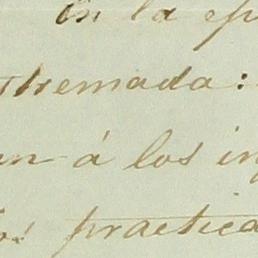 en la ep
stremada:
an á los in
os: practica